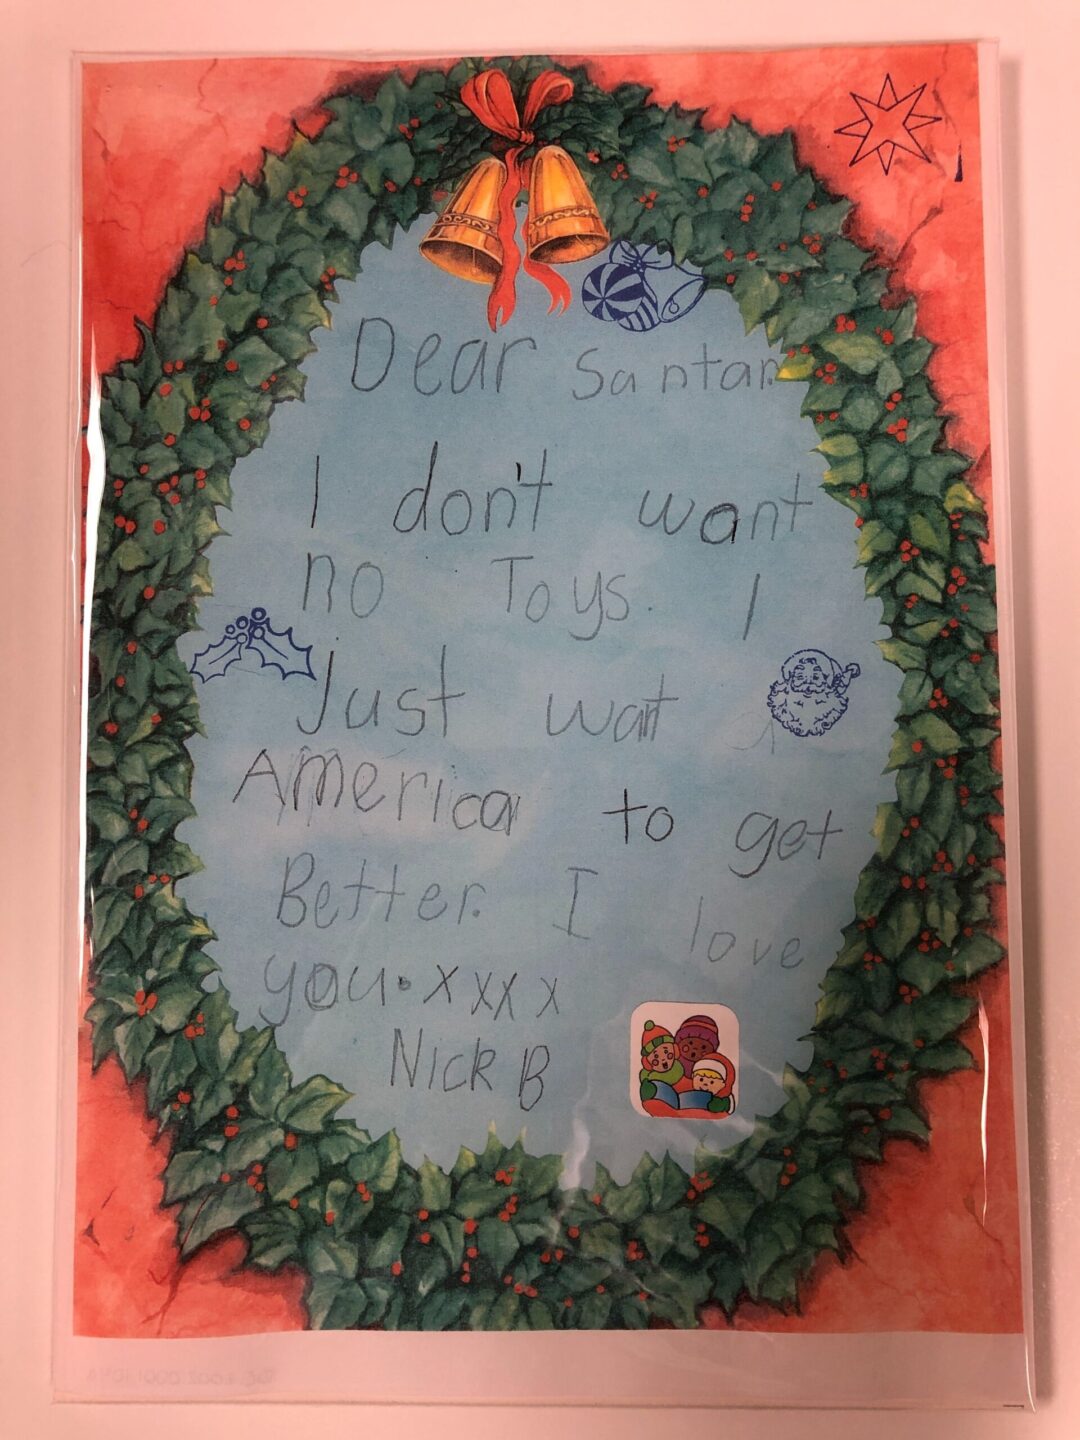 Dear Santar.
I don't want
no Toys. I
Just want
America to get
Better. I love
you. x x x x
Nick B